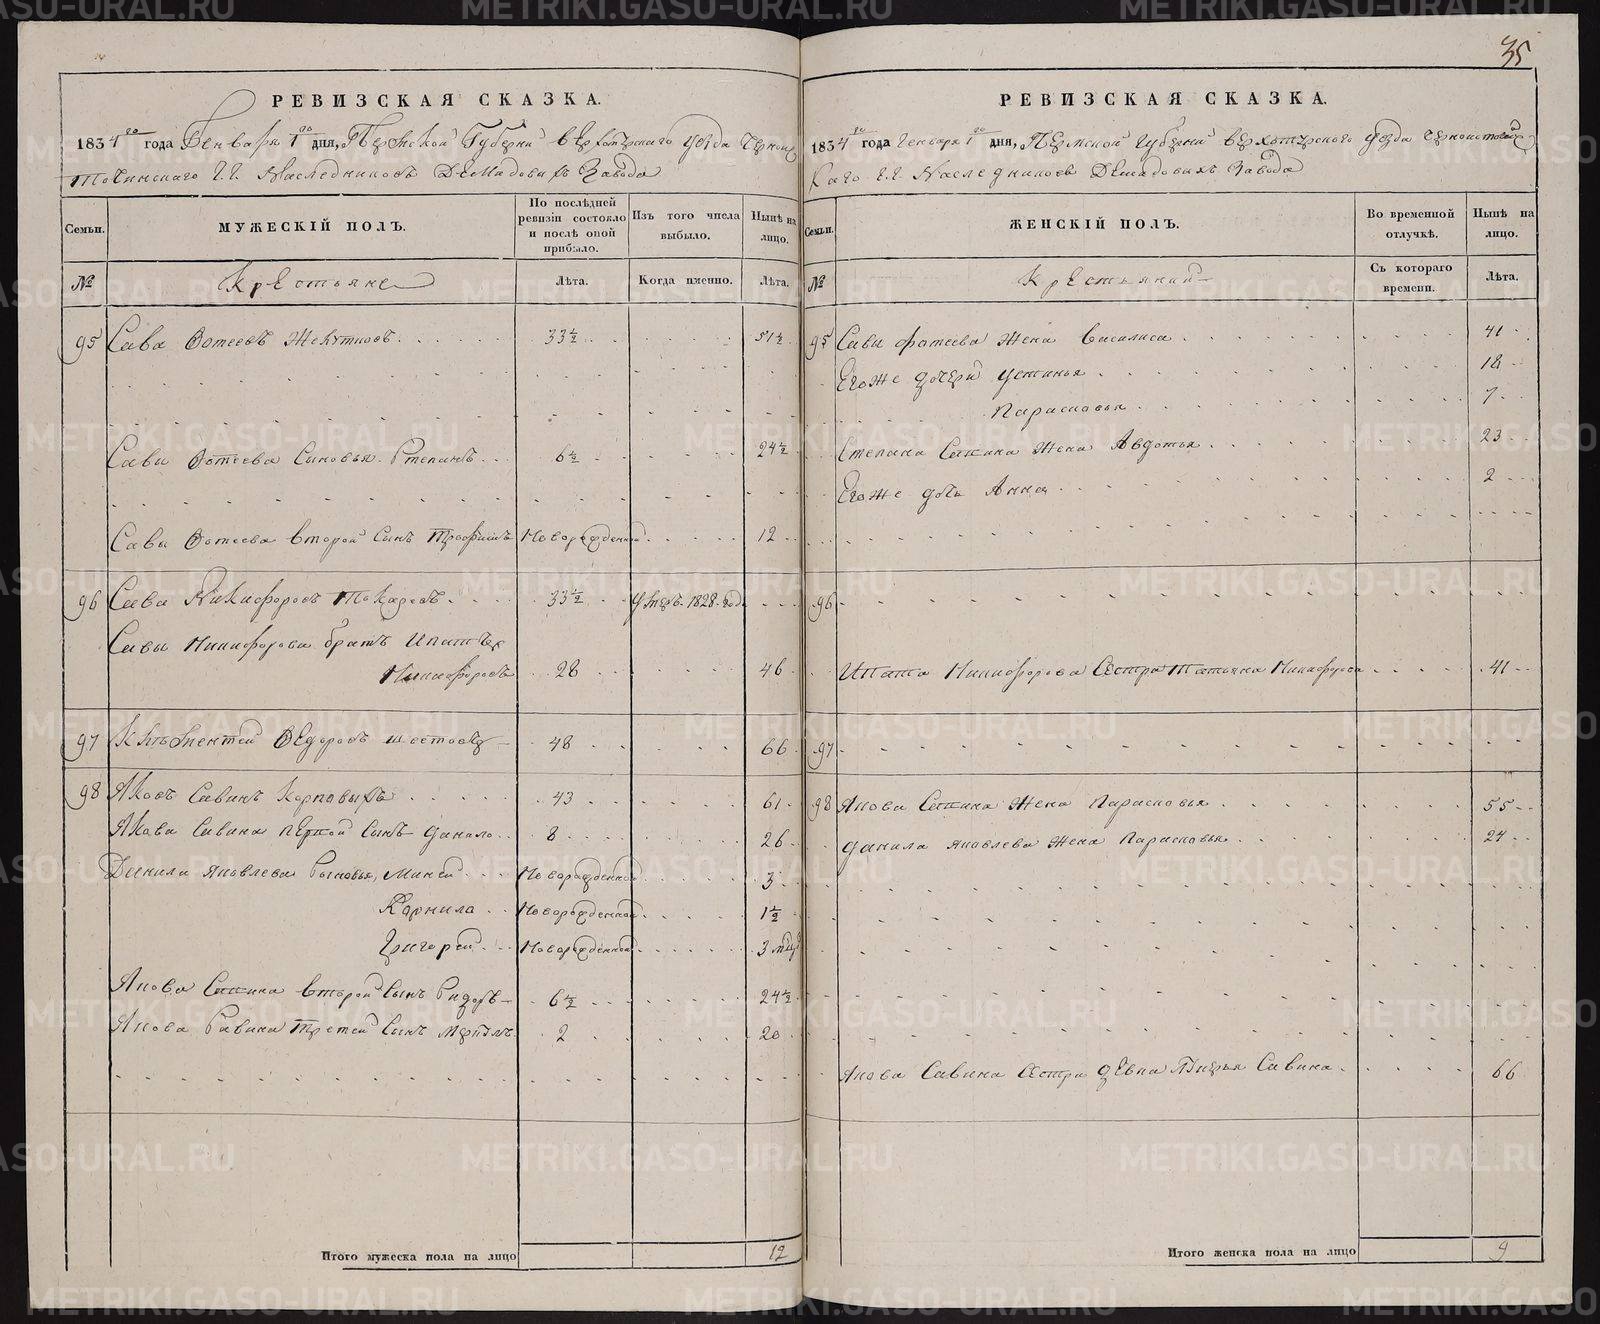 35
РЕВИЗСКАЯ СКАЗКА.
1834го года Генваря 1го дня, Пермской Губернии Верхотурского уезда Черноис
точинскаго Г.Г. Наследниковъ Демидовыхъ Завода
Семьи.
МУЖЕСКІЙ ПОЛЪ.
По послѣдней ревизіи состояло и послѣ оной прибыло.
Изъ того числа выбыло.
Нынѣ на лицо.
№
Крестьяне
Лѣта.
Когда именно.
Лѣта.
95 Сава Фотеевъ 33½ 51½
Савы Фотеева Сыновья Степанъ 6½ 24½
Савы Фотеева второй сынъ Трофимъ Новорожденной 12
96 Сава Никифоровъ Токаревъ 33½ Умеръ 1828 год
Савы Никифорова братъ Ипатъ
Никифоровъ 28 46
97 Климентей Федоровъ 48 66
98 Яковъ Савинъ Карповыхъ 43 61
Якова Савина первой сынъ Данило 8 26
Данила Яковлева Сыновья, Миней Новорожденной 3
Корнила Новорожденной 1½
Григорей Новорожденной 3 мец
Якова Савина второй сынъ Сидоръ 6½ 24½
Якова Савина третей сынъ 2 20
Итого мужеска пола на лицо 12
РЕВИЗСКАЯ СКАЗКА.
1834го года Генваря 1го дня, Пермской Губернии Верхотурского уезда Черноисточинс
каго Г.Г. Наследниковъ Демидовыхъ Завода
Семьи.
ЖЕНСКІЙ ПОЛЪ.
Во временной отлучкѣ.
Нынѣ на лицо.
№
Съ котораго времени.
Лѣта.
95 Савы Фотеева жена Василиса 41
Егоже дочери Устинья 18
Парасковья 7
Степана Савина жена Авдотья 23
Егоже дочь Анна 2
96
Ипата Никифорова Сестра Татьяна Никифорова 41
97
98 Якова Савина жена Парасковья 55
Данила Яковлева жена Парасковья 24
Якова Савина Сестра девка Савина 66
Итого женска пола на лицо 9
METRIKI.GASO-URAL.RU